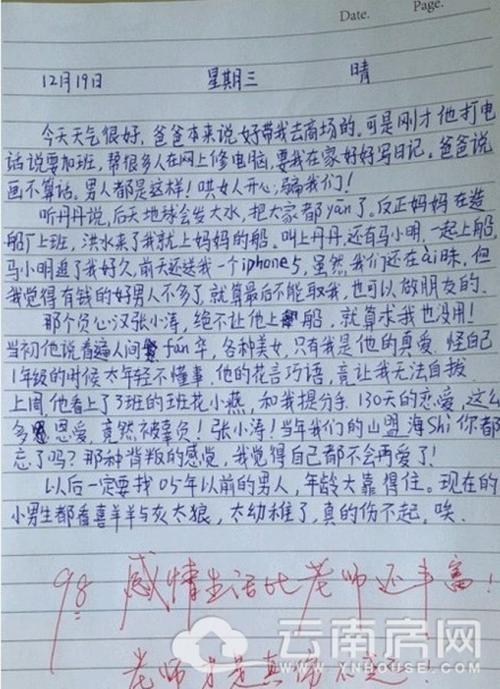 Date. Page.
12月19日 星期三 晴
今天天气很好,爸爸本来说好带我去商场的。可是刚才他打电
话说要加班,帮很多人在网上修电脑,要我在家好好写日记。爸爸说
画不算话。男人都是这样!哄女人开心,骗我们!
听丹丹说,后天地球会发大水,把大家都yān了。反正妈妈在造
船厂上班,洪水来了我就上妈妈的船。叫上丹丹,还有马小明,一起上船,
马小明追了我好久,前天还送我一个iphone5,虽然我们还在ài昧,但
我觉得有钱的好男人不多了,就算最后不能取我,也可以做朋友的。
那个负心汉张小涛,绝不让他上船,就算求我也没用!
当初他说看遍人间fán华,各种美女,只有我是他的真爱.怪自己
1年级的时候太年轻不懂事.他的花言巧语,竟让我无法自拔.
上周,他看上了3班的班花小燕,和我提分手.130天的恋爱,这么
多恩爱,竟然被辜负!张小涛!当年我们的山盟海Shi你都
忘了吗?那种背叛的感觉,我觉得自己都不会再爱了!
以后一定要找05年以前的男人,年龄大靠得住。现在的
小男生都看喜羊羊与灰太狼,太幼稚了,真的伤不起,唉.
98 感情生活比老师还丰富!
老师才是真伤不起!
云南房网
WWW.YNHOUSE.COM